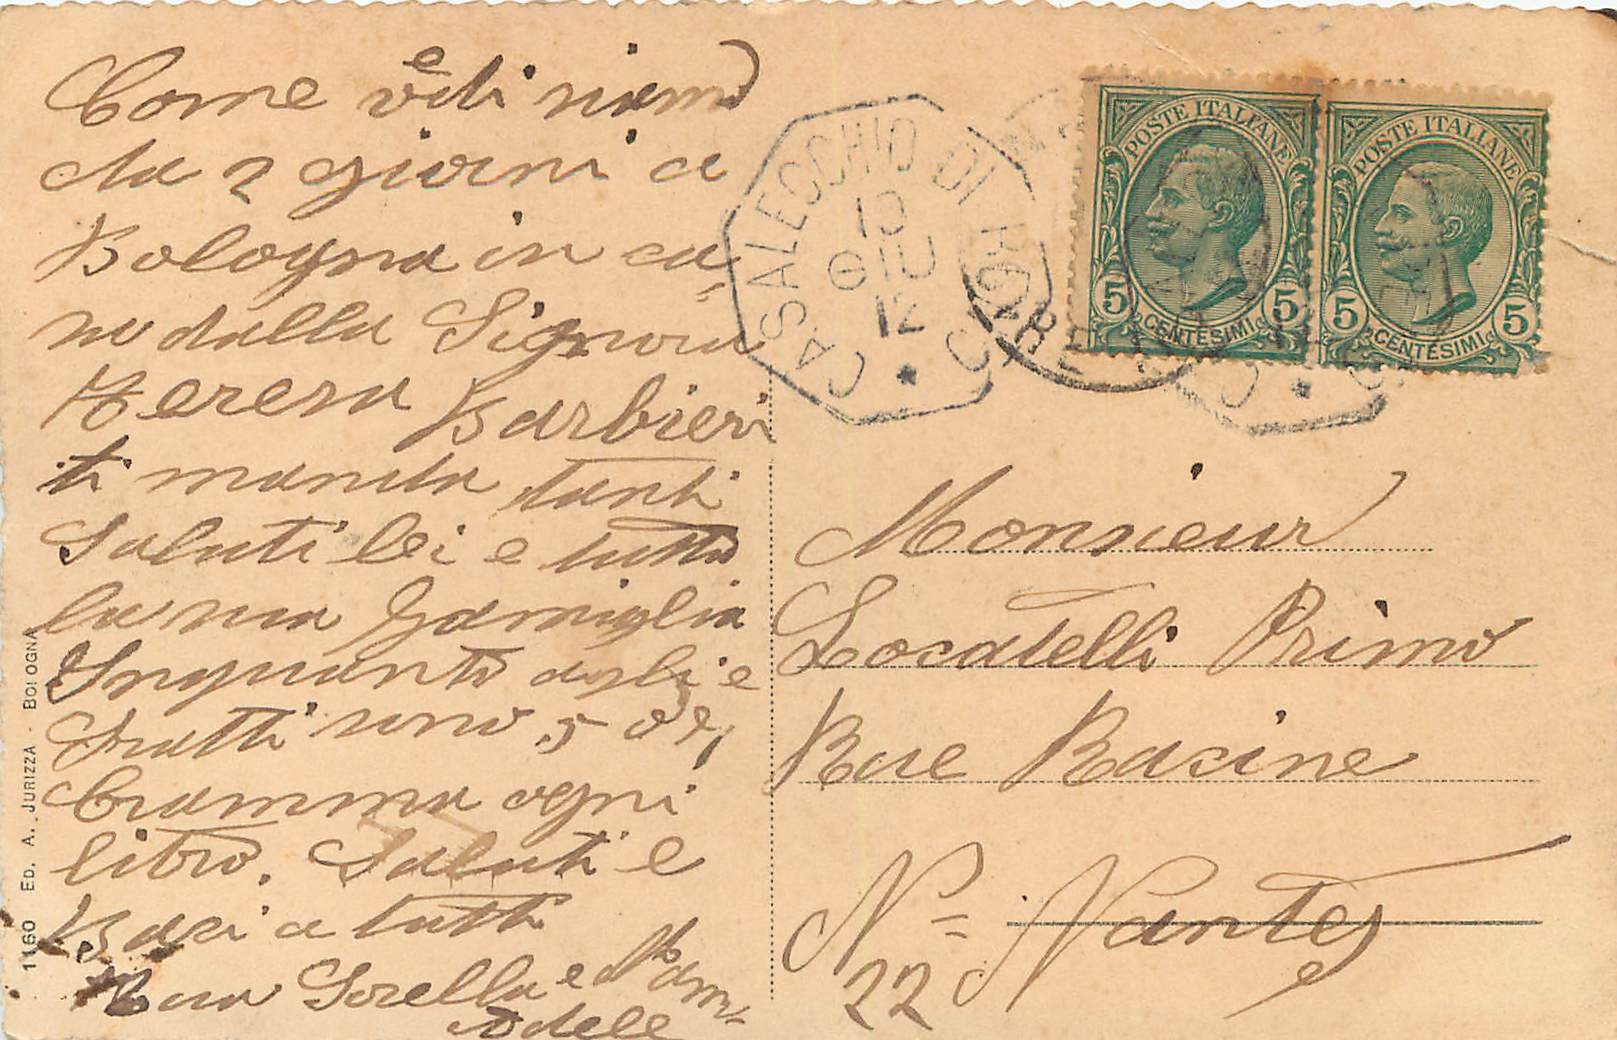 Come vedi siamo
da 2 giorni a
Bologna in ca
sa dalla Signora
Teresa Barbieri
ti manda tanti
Saluti lei e tutta
la sua famiglia
Inquanto agli e
frutti sono 5 
Gramma ogni
libro. Saluti e
Baci a tutti
tua Sorella e Mam-
Adele
1160 ED. A. JURIZZA - BOLOGNA
CASALECCHIO DI RENO
10
GIU
12
POSTE ITALIANE
5 CENTESIMI 5
POSTE ITALIANE
5 CENTESIMI 5
Monsieur
Locatelli Primo
Rue Racine
N= Nantes
22